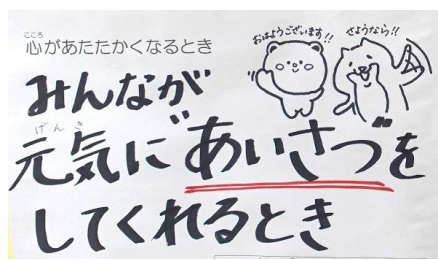 こころ
心があたたかくなるとき
おはようございます!!
さようなら!!
みんなが
げんき
元気に"あいさつ"を
してくれるとき